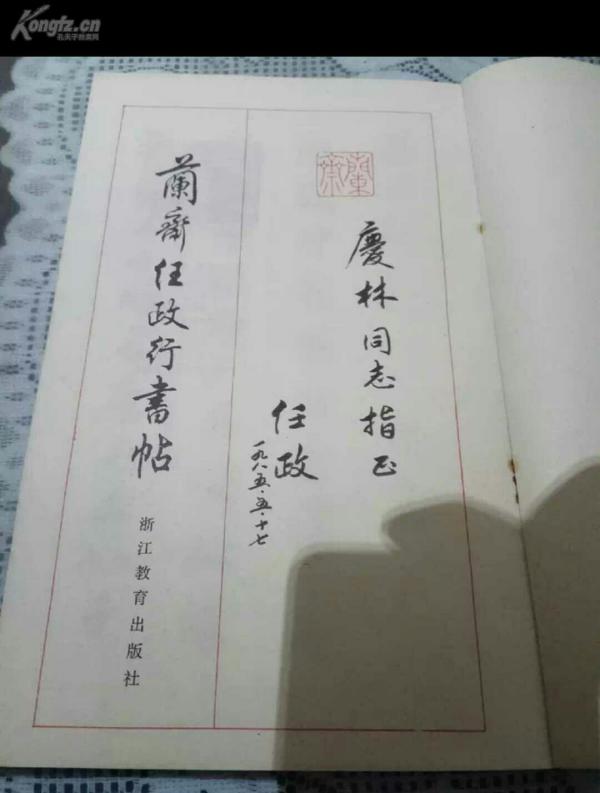 Kongfz.cn
孔夫子旧书网
蘭齋
慶林同志指正
任政
一九八五·五·十七
蘭齋任政行書帖
浙江教育出版社